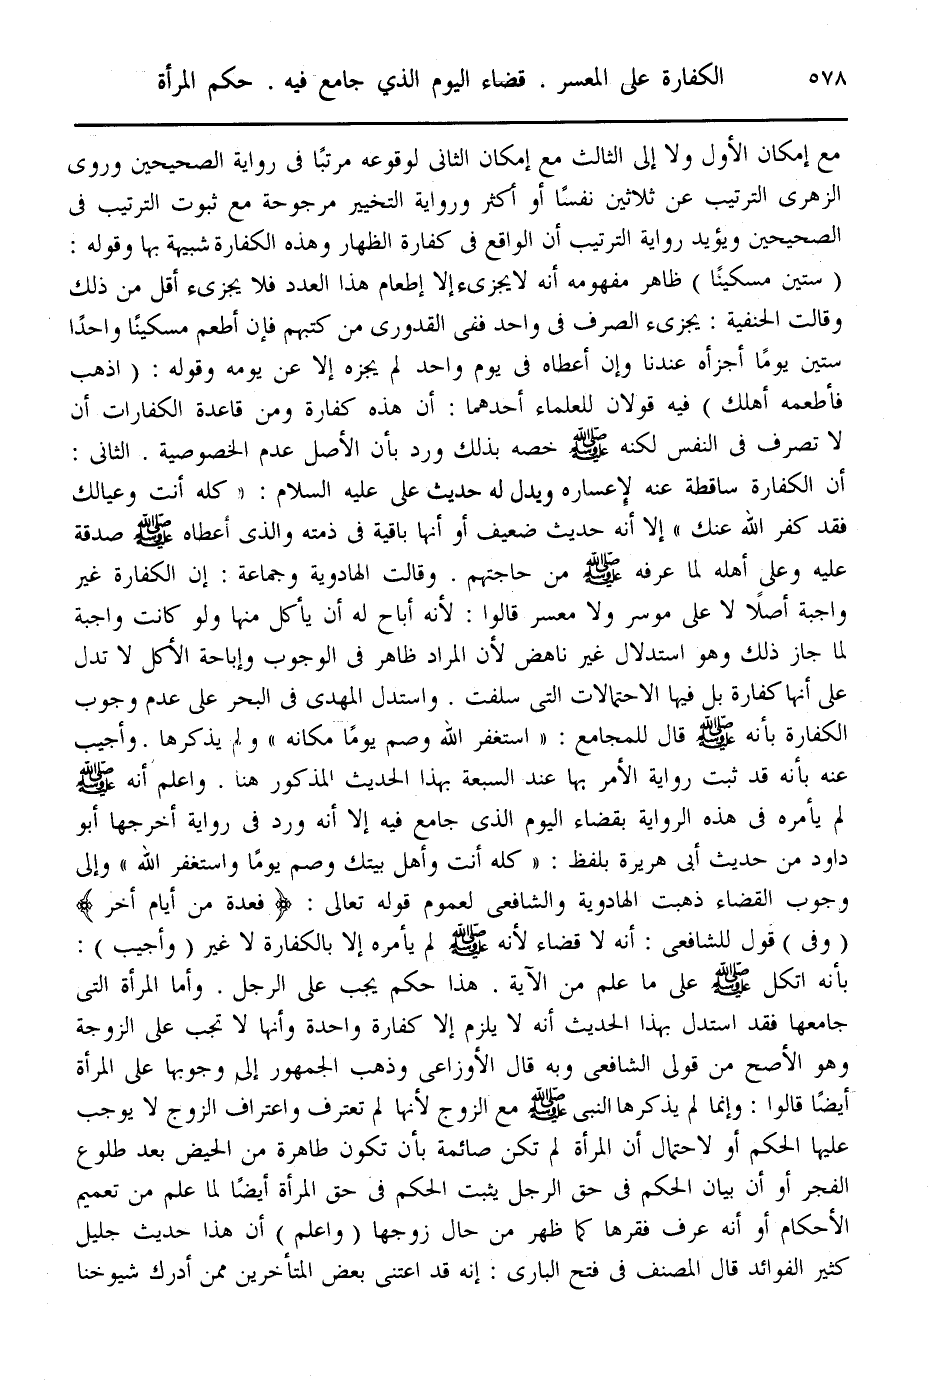 ٥٧٨ الكفارة على المعسر . قضاء اليوم الذي جامع فيه . حكم المرأة
مع إمكان الأول ولا إلى الثالث مع إمكان الثانى لوقوعه مرتبًا فى رواية الصحيحين وروى
الزهرى الترتيب عن ثلاثين نفسًا أو أكثر ورواية التخيير مرجوحة مع ثبوت الترتيب فى
الصحيحين ويؤيد رواية الترتيب أن الواقع فى كفارة الظهار وهذه الكفارة شبيهة بها وقوله :
( ستين مسكينًا ) ظاهر مفهومه أنه لايجزىء إلا إطعام هذا العدد فلا يجزىء أقل من ذلك
وقالت الحنفية : يجزىء الصرف فى واحد ففى القدورى من كتبهم فإن أطعم مسكينًا واحدًا
ستين يومًا أجزأه عندنا وإن أعطاه فى يوم واحد لم يجزه إلا عن يومه وقوله : ( اذهب
فأطعمه أهلك ) فيه قولان للعلماء أحدهما : أن هذه كفارة ومن قاعدة الكفارات أن
لا تصرف فى النفس لكنه ﷺ خصه بذلك ورد بأن الأصل عدم الخصوصية . الثانى :
أن الكفارة ساقطة عنه لإعساره ويدل له حديث على عليه السلام : « كله أنت وعيالك
فقد كفر الله عنك » إلا أنه حديث ضعيف أو أنها باقية فى ذمته والذى أعطاه ﷺ صدقة
عليه وعلى أهله لما عرفه ﷺ من حاجتهم . وقالت الهادوية وجماعة : إن الكفارة غير
واجبة أصلًا لا على موسر ولا معسر قالوا : لأنه أباح له أن يأكل منها ولو كانت واجبة
لما جاز ذلك وهو استدلال غير ناهض لأن المراد ظاهر فى الوجوب وإباحة الأكل لا تدل
على أنها كفارة بل فيها الاحتمالات التى سلفت . واستدل المهدى فى البحر على عدم وجوب
الكفارة بأنه ﷺ قال للمجامع : « استغفر الله وصم يومًا مكانه » ولم يذكرها . وأجيب
عنه بأنه قد ثبت رواية الأمر بها عند السبعة بهذا الحديث المذكور هنا . واعلم أنه ﷺ
لم يأمره فى هذه الرواية بقضاء اليوم الذى جامع فيه إلا أنه ورد فى رواية أخرجها أبو
داود من حديث أبى هريرة بلفظ : « كله أنت وأهل بيتك وصم يومًا واستغفر الله » وإلى
وجوب القضاء ذهبت الهادوية والشافعى لعموم قوله تعالى : ﴿ فعدة من أيام أخر ﴾
( وفى ) قول للشافعى : أنه لا قضاء لأنه ﷺ لم يأمره إلا بالكفارة لا غير ( وأجيب ) :
بأنه اتكل ﷺ على ما علم من الآية . هذا حكم يجب على الرجل . وأما المرأة التى
جامعها فقد استدل بهذا الحديث أنه لا يلزم إلا كفارة واحدة وأنها لا تجب على الزوجة
وهو الأصح من قولى الشافعى وبه قال الأوزاعى وذهب الجمهور إلى وجوبها على المرأة
أيضًا قالوا : وإنما لم يذكرها النبى ﷺ مع الزوج لأنها لم تعترف واعتراف الزوج لا يوجب
عليها الحكم أو لاحتمال أن المرأة لم تكن صائمة بأن تكون طاهرة من الحيض بعد طلوع
الفجر أو أن بيان الحكم فى حق الرجل يثبت الحكم فى حق المرأة أيضًا لما علم من تعميم
الأحكام أو أنه عرف فقرها كما ظهر من حال زوجها ( واعلم ) أن هذا حديث جليل
كثير الفوائد قال المصنف فى فتح البارى : إنه قد اعتنى بعض المتأخرين ممن أدرك شيوخنا